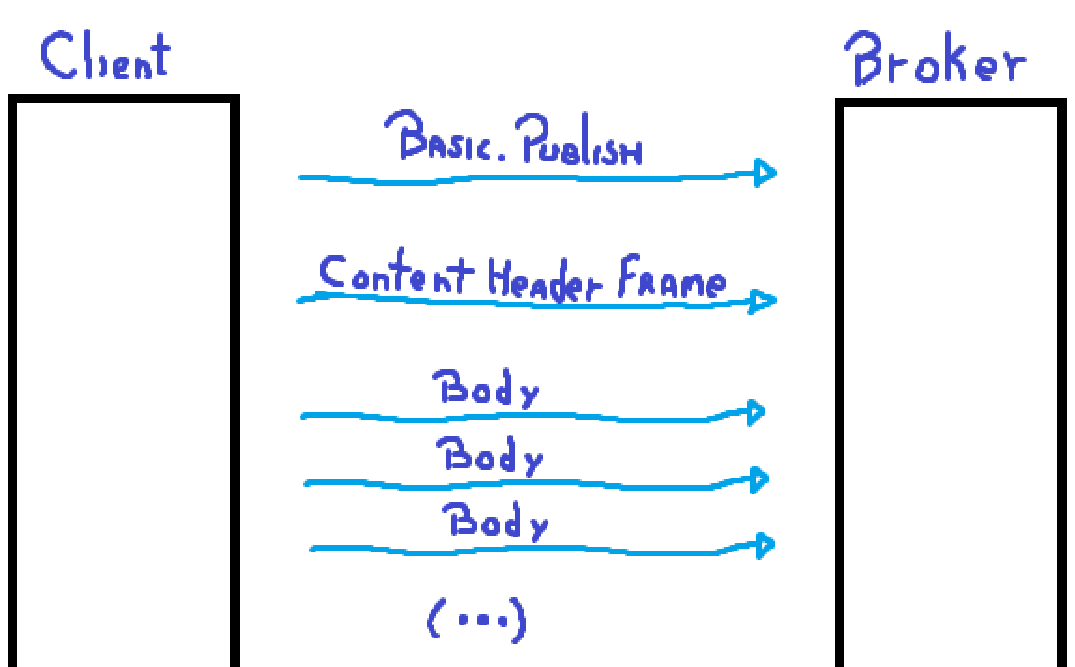 Client
Broker
Basic.Publish
Content Header Frame
Body
Body
Body
(...)